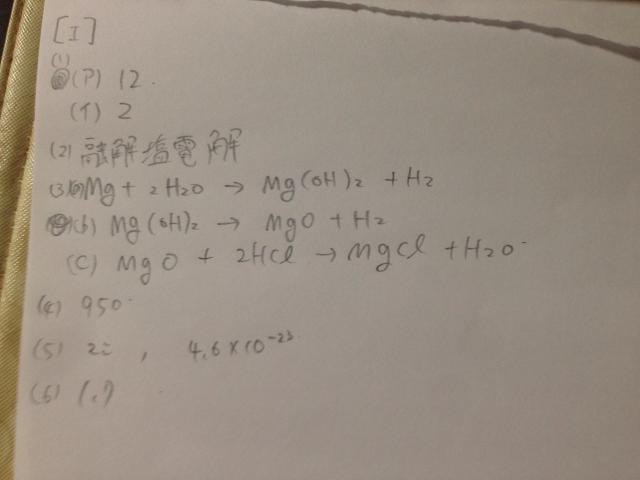 [I]
(1)
(ア) 12.
(イ) 2
(2) 融解塩電解
(3)(a) Mg + 2H2O → Mg(OH)2 + H2
(b) Mg(OH)2 → MgO + H2
(C) MgO + 2HCl → MgCl + H2O
(4) 950
(5) , 4.6×10⁻²³
(6)